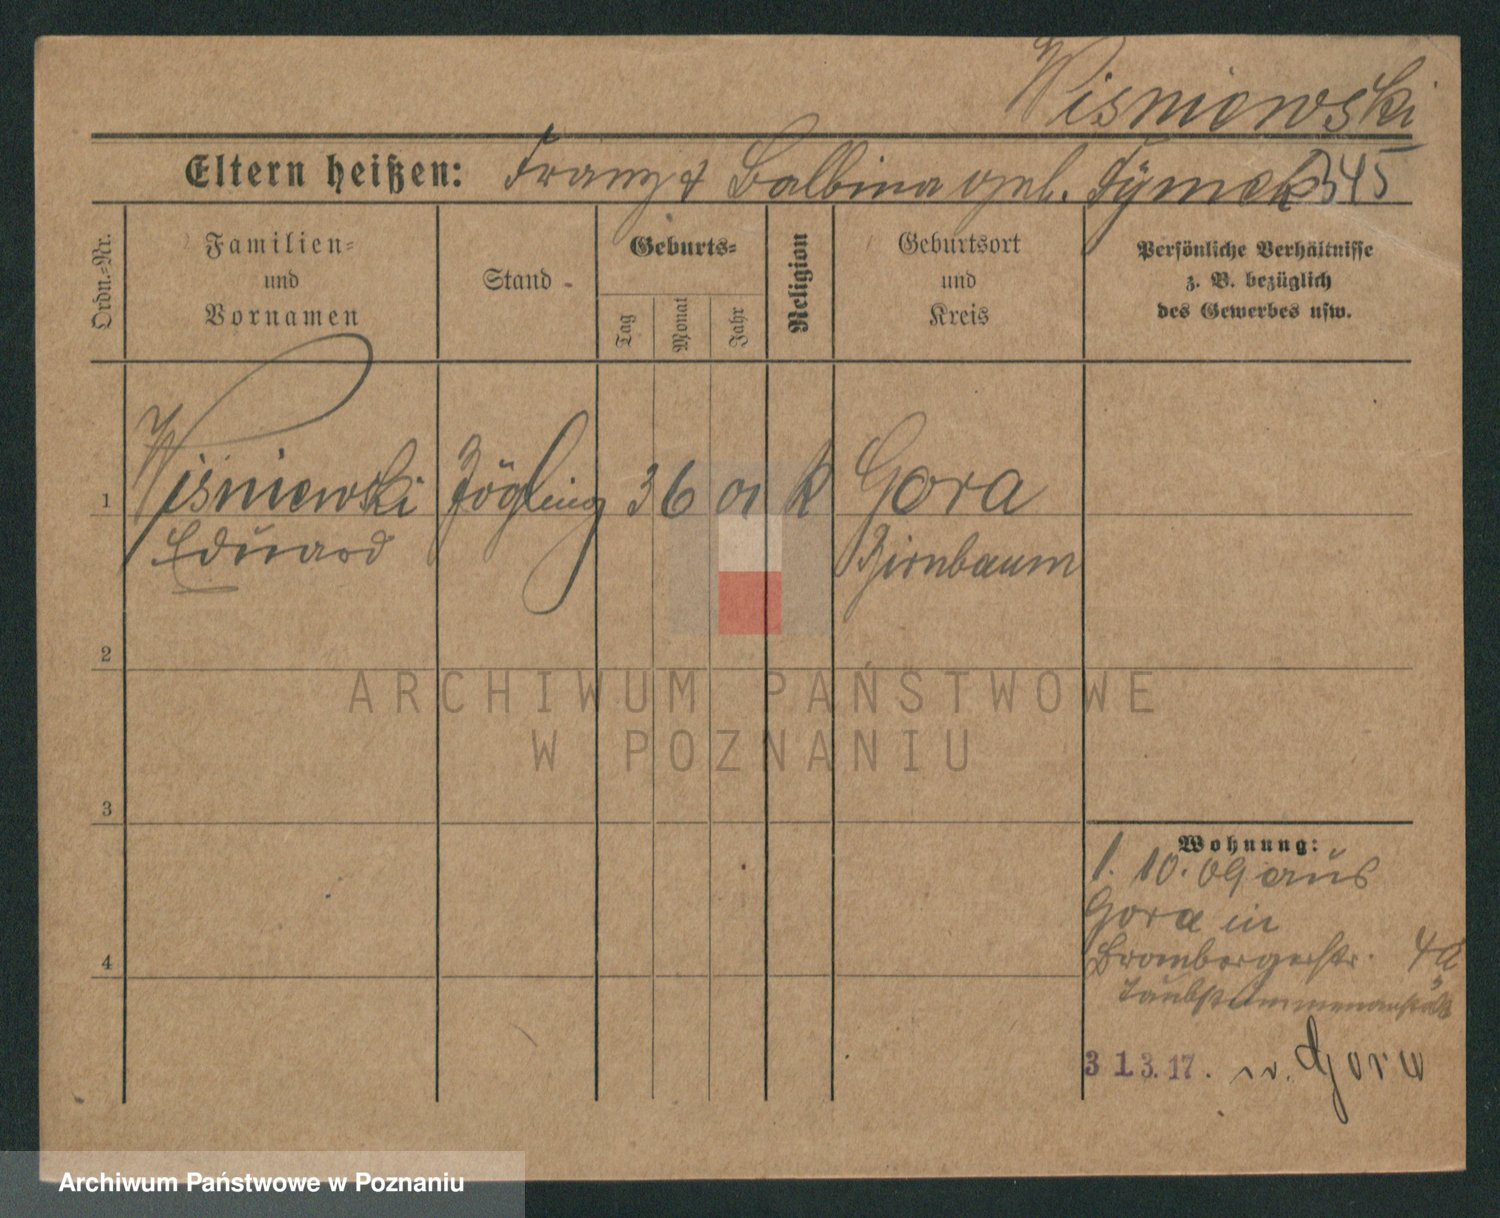 Wisniewski
Eltern heißen: Franz & Balbina geb. Tymek 345
Ordn.=Nr.
Familien=
und
Vornamen
Stand
Geburts=
Tag
Monat
Jahr
Religion
Geburtsort
und
Kreis
Persönliche Verhältnisse
z. B. bezüglich
des Gewerbes usw.
1
Wiśniewski Zögling 3 6 01 k Gora
Eduard Birnbaum
2
3
4
Wohnung:
1. 10. 09 aus
Gora in
Brombergerstr. 4a
Taubstummenanstalt
31.3.17. n. Gora
ARCHIWUM PAŃSTWOWE
W POZNANIU
Archiwum Państwowe w Poznaniu